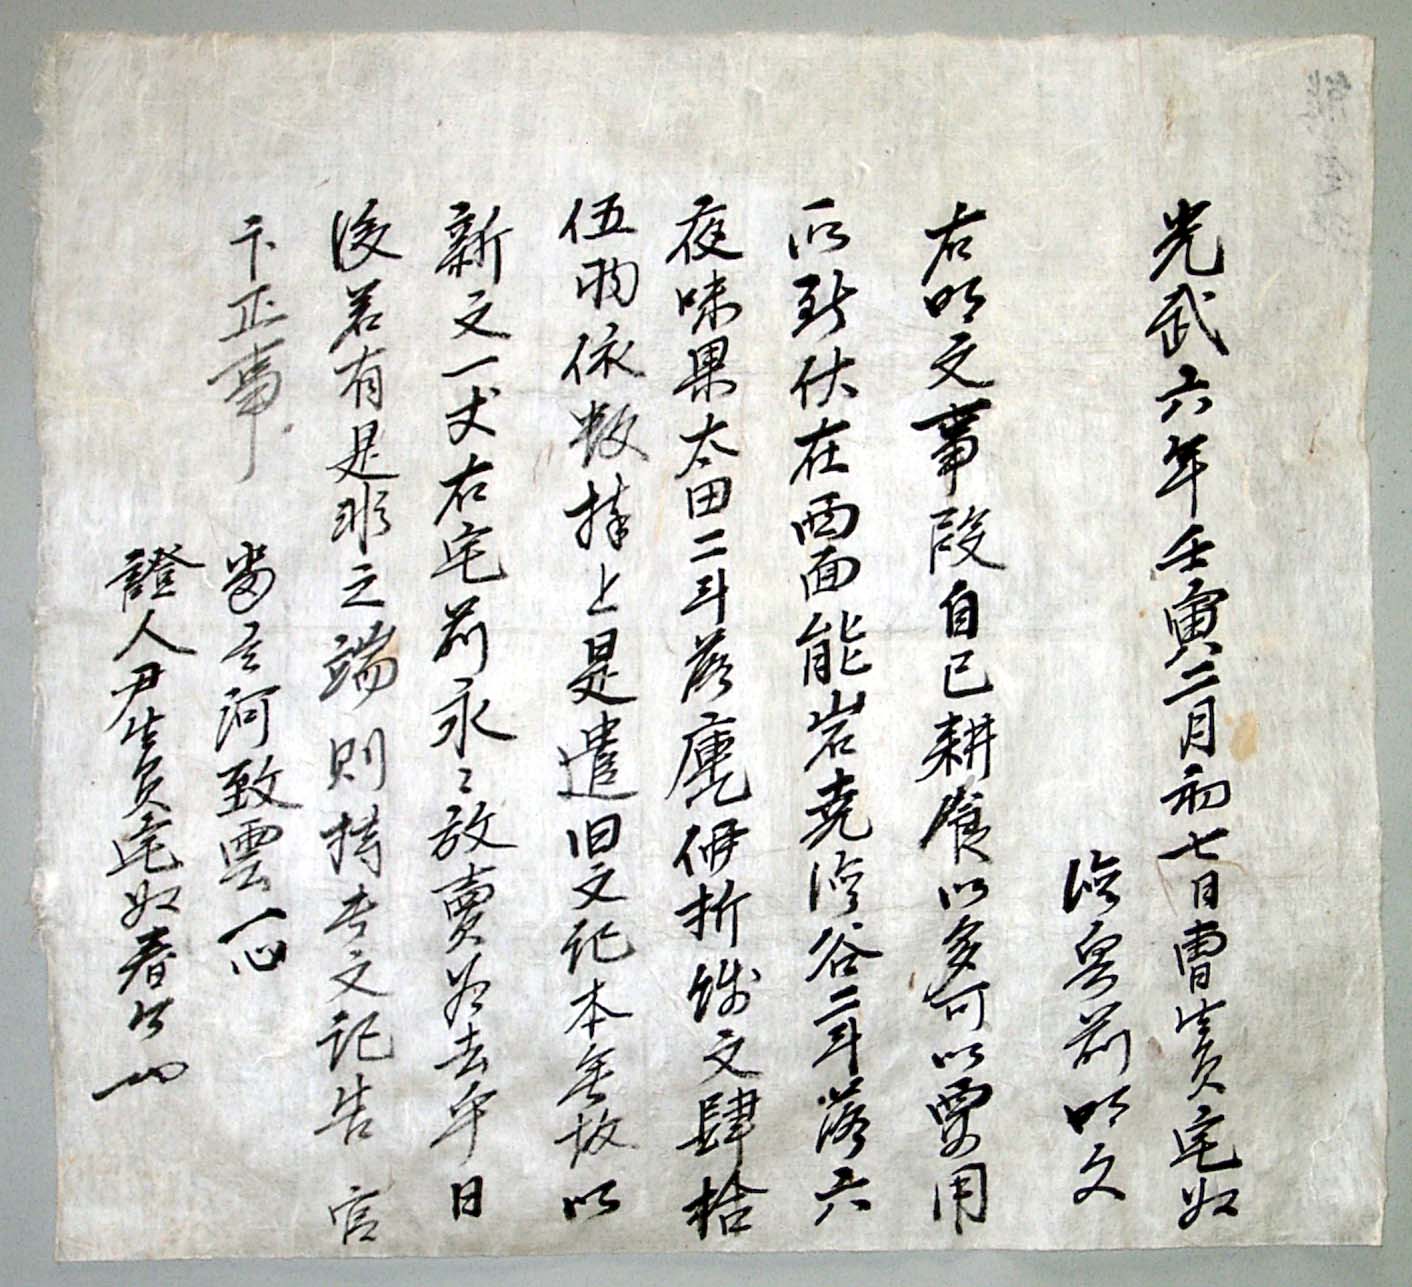 光武六年壬寅二月初七日曺生員宅奴
前明文
右明文事段自己耕食以多可以要用
所致伏在西面能岩堯谷二斗落六
夜味果太田二斗落庫価折錢文肆拾
伍両依數捧上是遣旧文記本無故以
新文一丈右宅前永〻放賣為去乎日
後若有是非之端則持此文記告官
卞正事
畓主河致雲
證人尹生員宅奴春